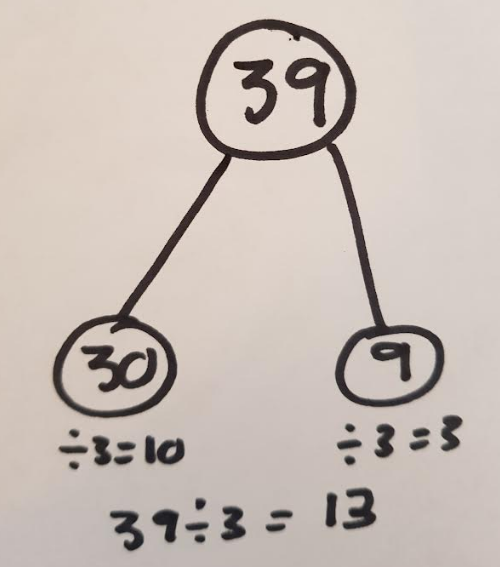 39
30 9
÷3=10 ÷3=3
39÷3 = 13